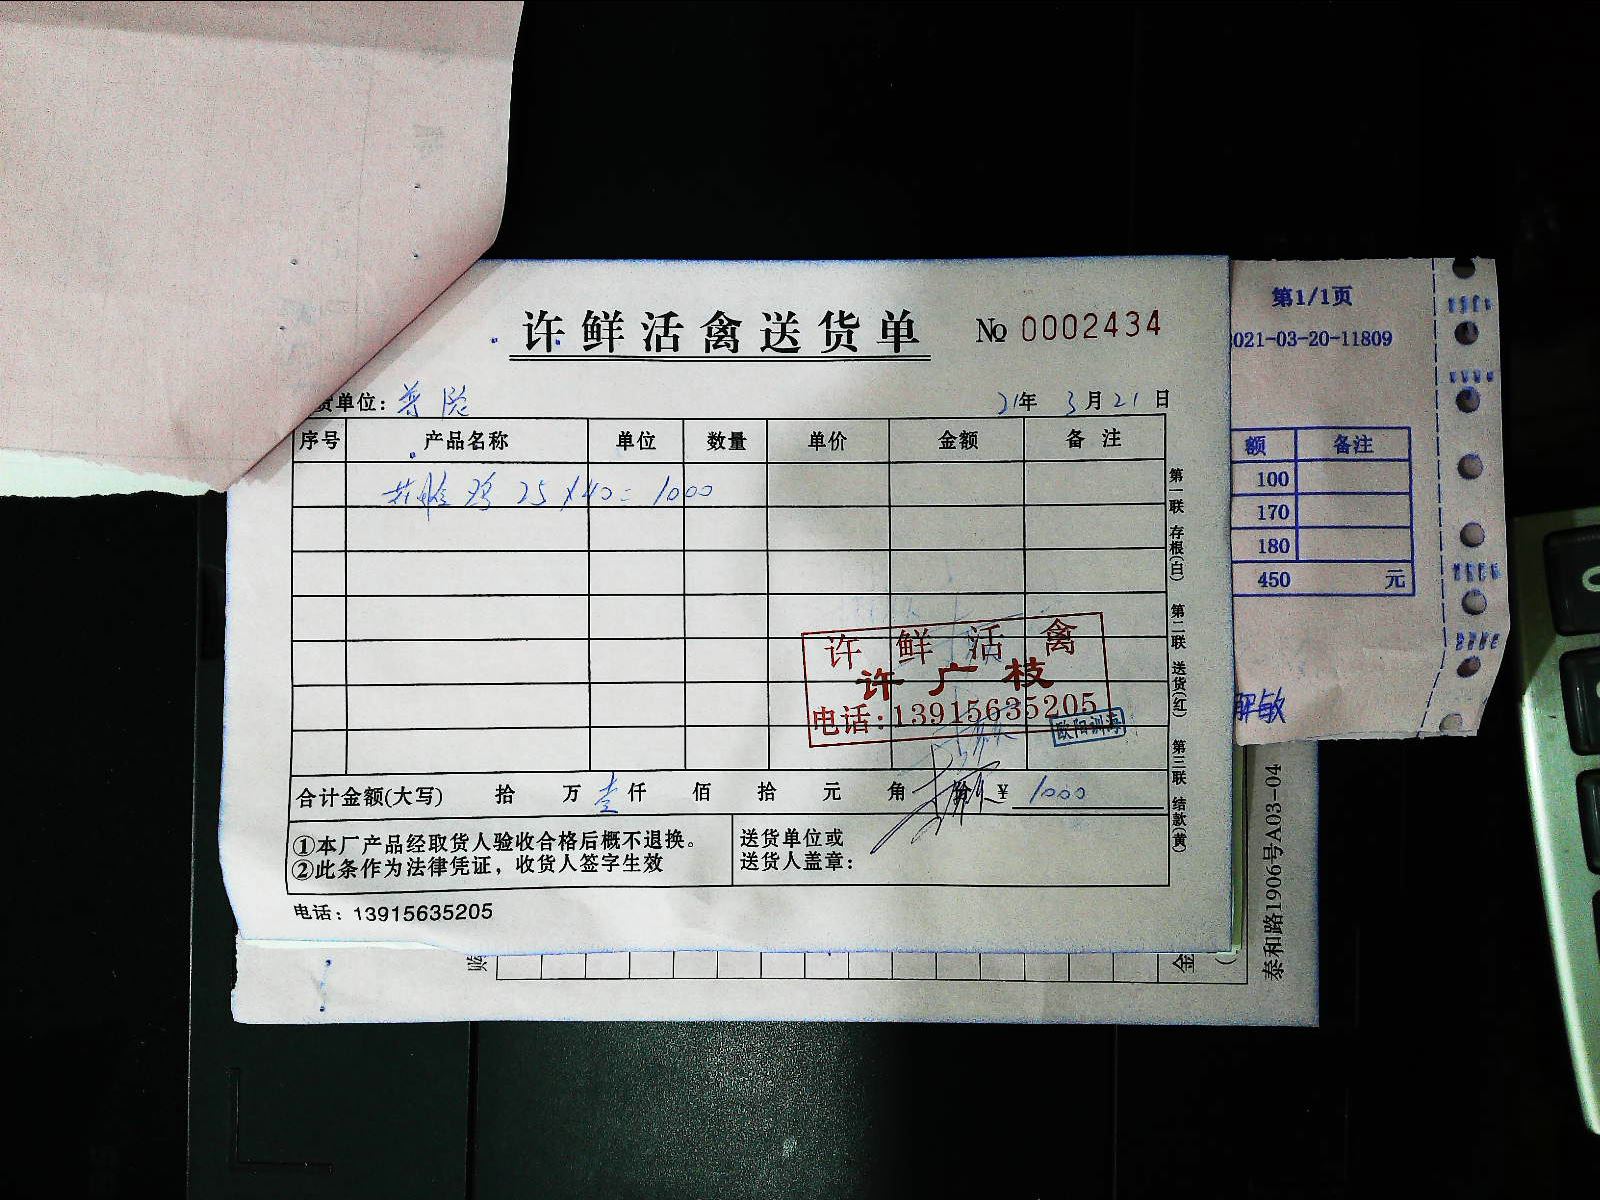 许鲜活禽送货单 № 0002434
货单位: 普院 21年 3月21日
序号 产品名称 单位 数量 单价 金额 备注
鸡 25×40=1000
第一联 存根(白) 第二联 送货(红) 第三联 结款(黄)
许鲜活禽
许广枝
电话:13915635205
欧阳训海
合计金额(大写) 拾 万 壹仟 佰 拾 元 角 分 ¥ 1000
①本厂产品经取货人验收合格后概不退换。
②此条作为法律凭证，收货人签字生效
送货单位或
送货人盖章:
电话: 13915635205
第1/1页
021-03-20-11809
额 备注
100
170
180
450 元
敏
泰和路1906号A03-04
购
金